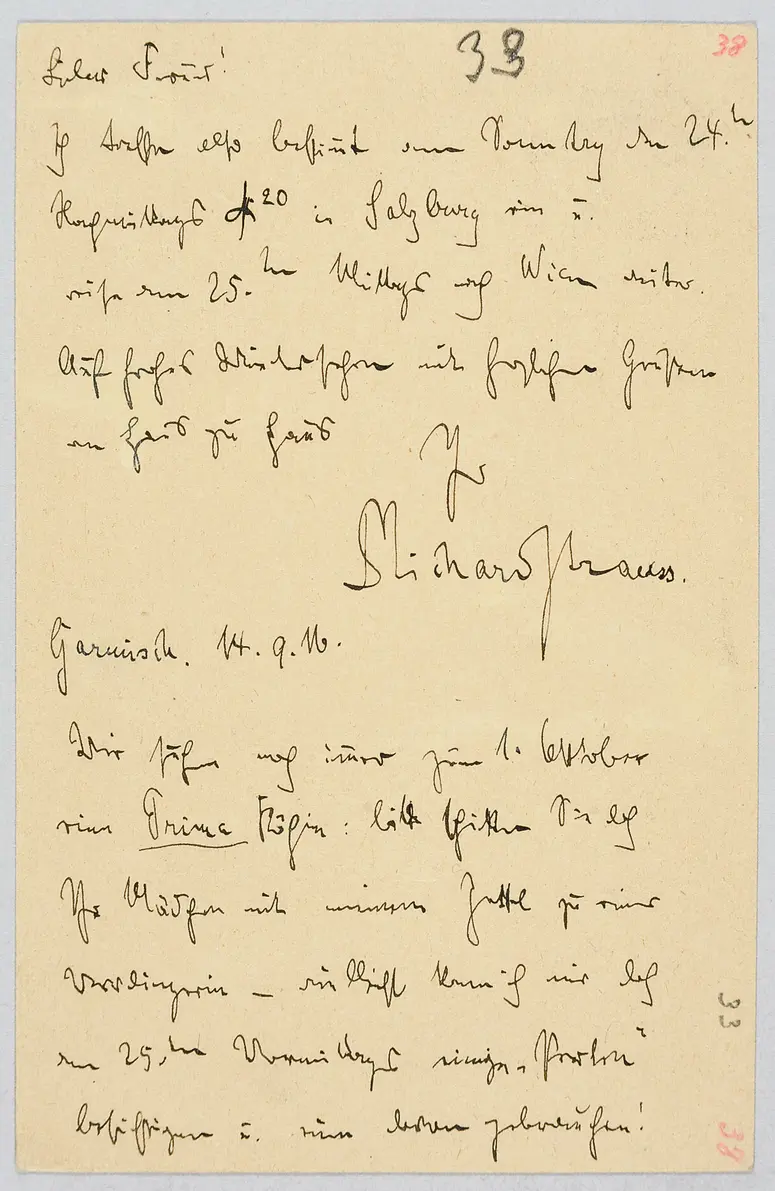 33
38
Lieber Freund!
Ich treffe also bestimmt am Sonntag den 24.ten
Nachmittags 4 20 in Salzburg ein u.
reise am 25.ten Mittags nach Wien weiter.
Auf frohes Wiedersehen mit herzlichen Grüßen
von Haus zu Haus
Ihr
Richard Strauss.
Garmisch. 14. 9. 16.
Wir suchen noch immer zum 1. Oktober
eine Prima Köchin: bitte schicken Sie doch
Ihr Mädchen mit meinem Zettel zu einer
Verdingerin – vielleicht kann ich mir doch
am 25.ten Vormittags einige „Perlen“
besichtigen u. eine davon gebrauchen!
33
38